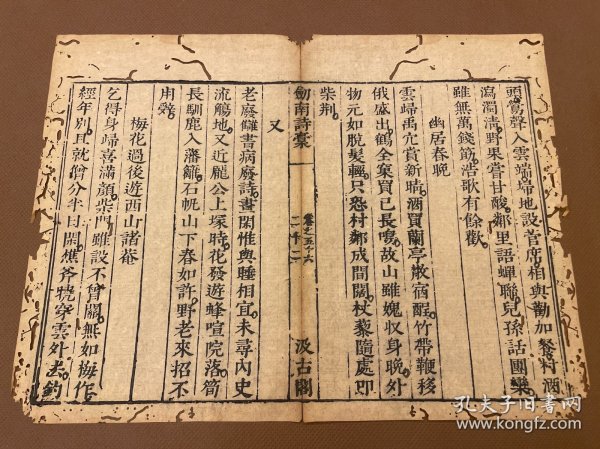 頭舂聲入雲端掃地設菅席相與勸加餐村酒
瀉濁清野果嘗甘酸鄰里語蟬聯兒孫話團欒
雖無萬錢筯浩歌有餘歡
幽居春晚
雲歸禹穴賞新晴酒買蘭亭散宿酲竹帶鞭移
俄盛出鶴全巢買已長鳴故山雖媿收身晚外
物元如脫髮輕只恐村鄰成間闊杖藜隨處即
柴荊
劍南詩槀 卷之五十六 二十二 汲古閣
又
老廢讎書病廢詩晝閑惟與睡相宜未尋內史
流觴地又近龐公上塚時花發遊蜂喧院落筍
長馴鹿入藩籬石帆山下春如許野老來招不
用辤
梅花過後遊西山諸菴
乞得身歸喜滿顏柴門雖設不曾關無如梅作
經年別且就僧分半日閑樵斧曉穿雲外去釣
孔夫子旧书网
www.kongfz.com